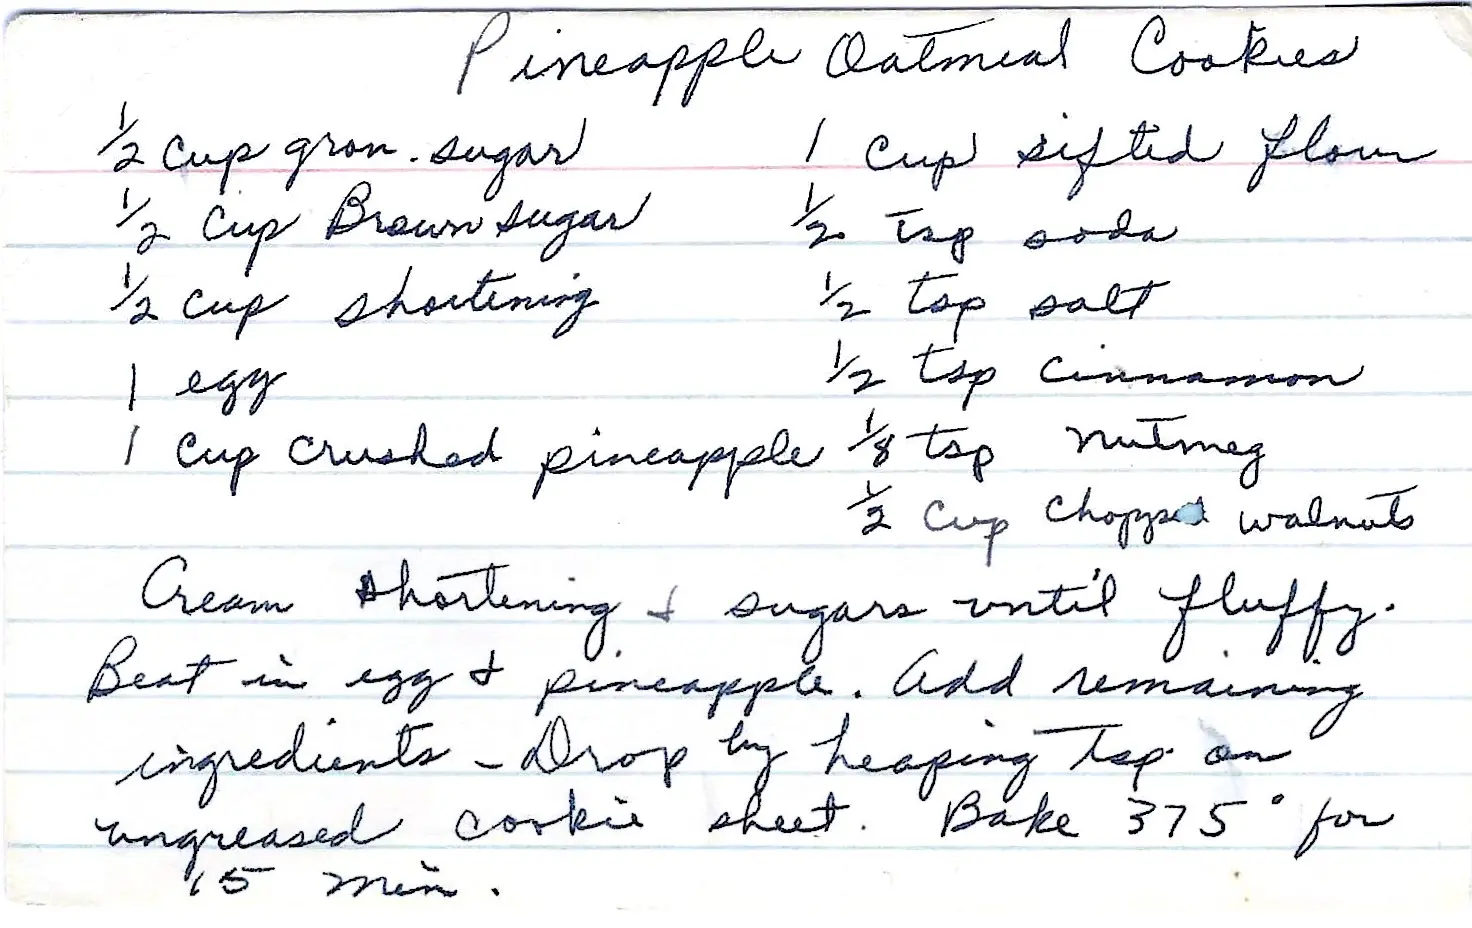 Pineapple Oatmeal Cookies
1/2 cup gran. sugar
1/2 cup Brown sugar
1/2 cup shortening
1 egg
1 cup crushed pineapple
1 cup sifted flour
1/2 tsp soda
1/2 tsp salt
1/2 tsp cinnamon
1/8 tsp nutmeg
1/2 cup chopped walnuts
Cream shortening & sugars until fluffy.
Beat in egg & pineapple. Add remaining
ingredients - Drop by heaping tsp on
ungreased cookie sheet. Bake 375° for
15 min.